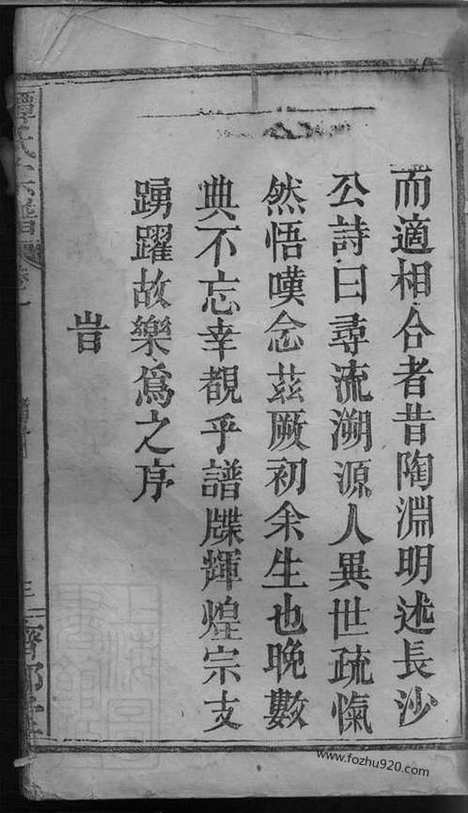 而適相合者昔陶淵明述長沙
公詩曰尋流溯源人異世疏慨
然悟嘆念茲厥初余生也晚數
典不忘幸觀乎譜牒輝煌宗支
踴躍故樂為之序
旹
譚氏宗譜
卷一
www.fozhu920.com